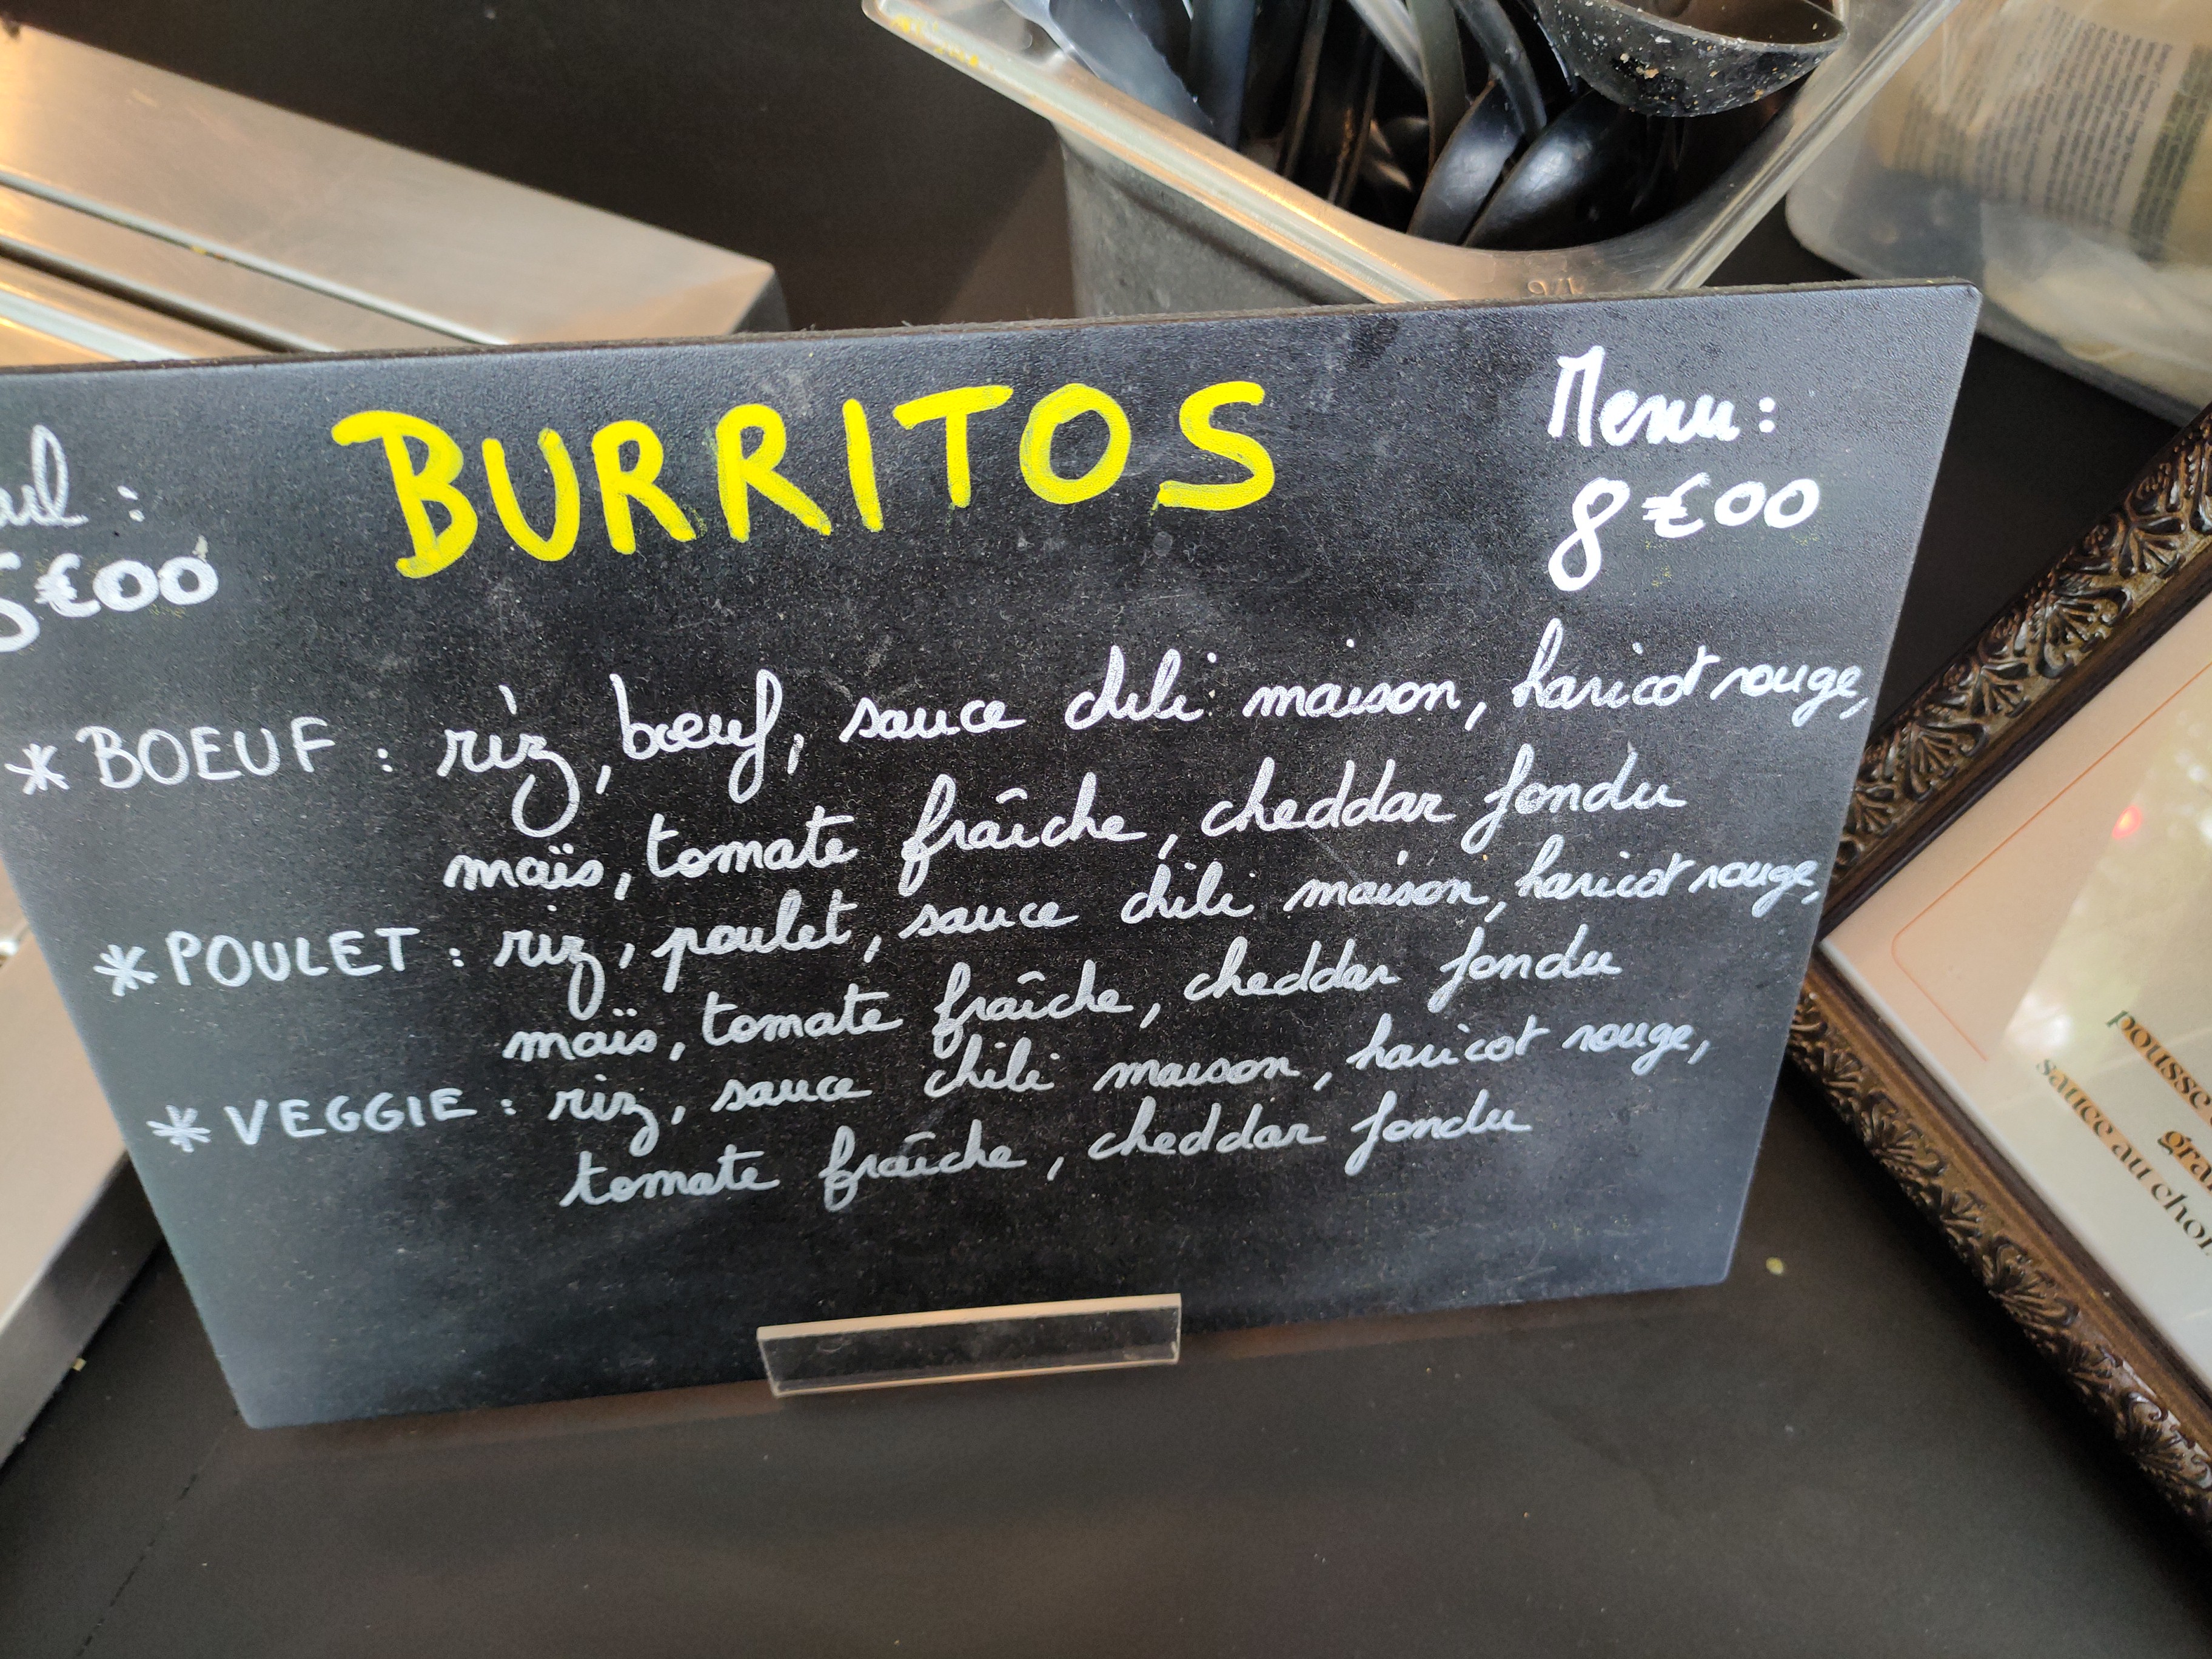 BURRITOS
Menu :
8€00
5€00
* BOEUF : riz, bœuf, sauce chili maison, haricot rouge,
maïs, tomate fraîche, cheddar fondu
* POULET : riz, poulet, sauce chili maison, haricot rouge,
maïs, tomate fraîche, cheddar fondu
* VEGGIE : riz, sauce chili maison, haricot rouge,
tomate fraîche, cheddar fondu
1/6
pousse
gra
sauce au choi